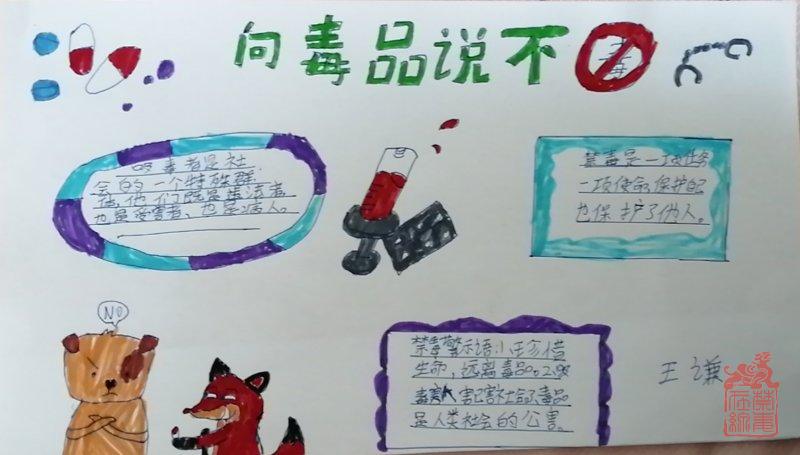 向毒品说不
吸毒者是社
会的一个特殊群
他们既是违法者
也是受害者、也是病人。
禁毒是一项任务
一项使命,保护自己
也保护了他人。
NO
禁毒警示语:1.珍惜
生命,远离毒品。2.吸
毒 害己害社会;毒品
是人类社会的公害。
王谦